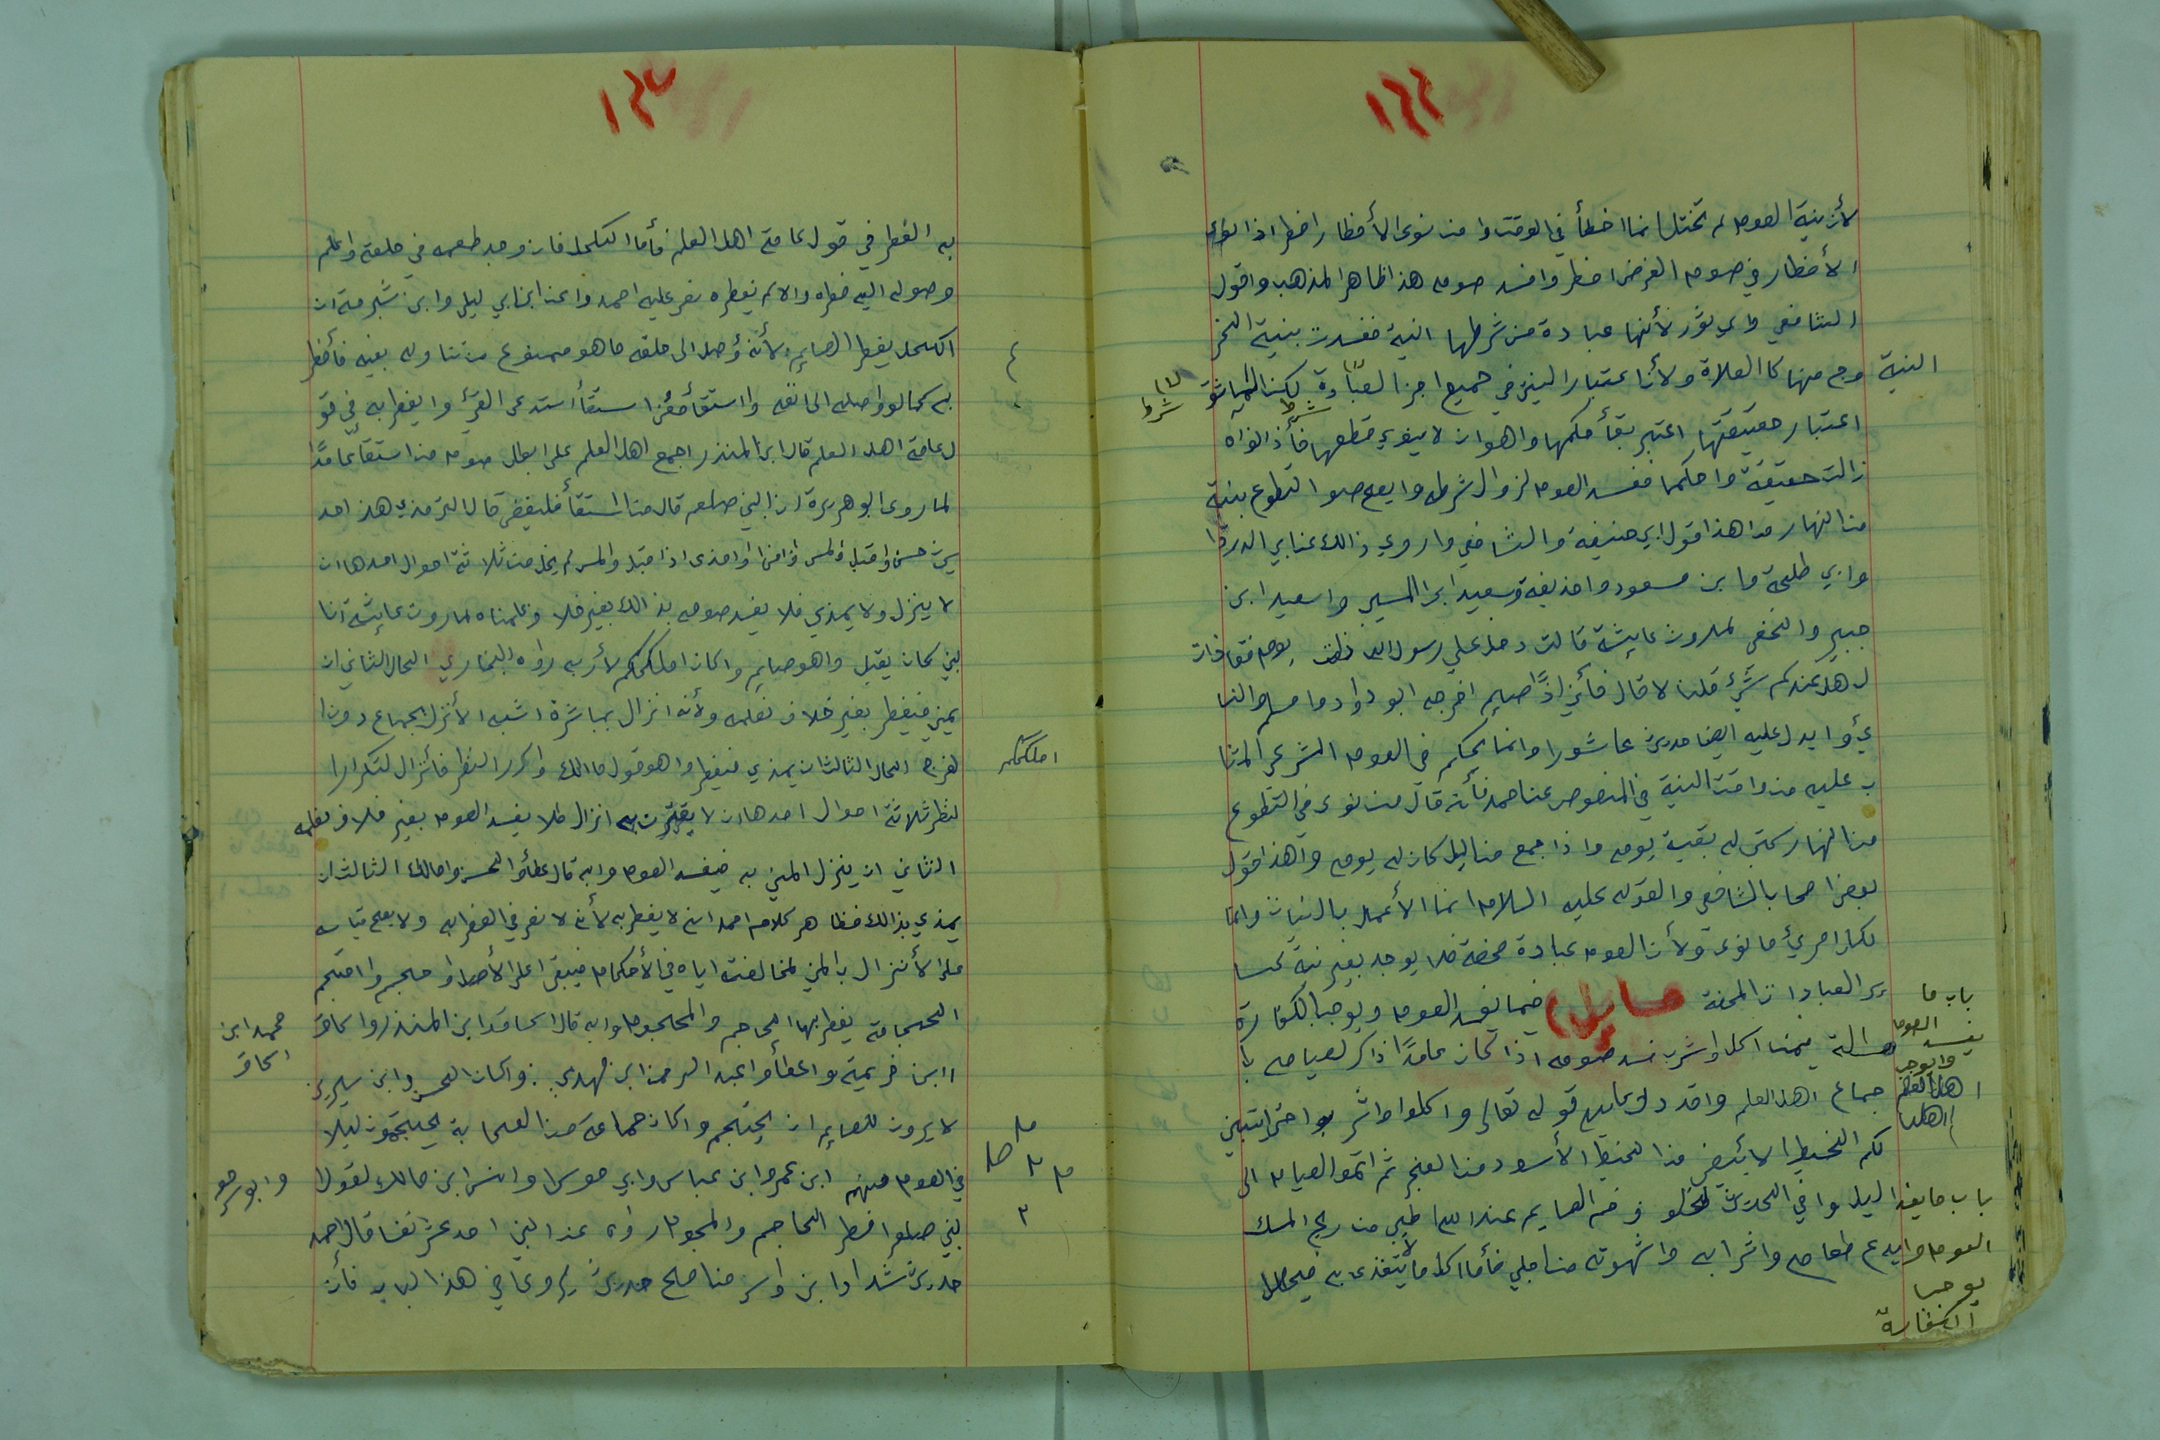 ١٢٢
لأن نية الصوم لم تختل إنما اخطأ في الوقت وا من نوى الأفطار افطر اذا نوى
الأفطار في صوم الفرض افطر وا فسد صومه هذا ظاهر المذهب وا قول
الشافعي وابي ثور لأنها عبادة من شرطها النية ففسدت بنية الخر
وج منها كا الصلاة ولأن اعتبار النية في جميع اجزا العبادة لكن لما شق
النية
لما شرط
اعتبار حقيقتها اعتبر بقأ حكمها واهو ان لا ينوي قطعها فأذا نواه
شرط
زالت حقيقة وا حكما ففسد الصوم لزوال شرطه وا يصح صوم التطوع بنية
من النهار وا هذا قول ابي حنيفة والشافعي وا روي ذالك عن ابي الدردا
وابي طلحة وا بن مسعود وا حذيفة وسعيد ابن المسيب وا سعيد ابن
جبير والنخعي لما روت عايشة قالت دخل علي رسول الله ذات يوم فقا
ل هل عندكم شيء قلنا لا قال فأني اذًا صايم اخرجه ابو داود وا مسلم والنسا
ئي وا يدل عليه ايضا حديث عاشورا وانما يحكم في الصوم الشرعي المثا
ب عليه من وا قت النية في المنصوص عن احمد فأنه قال من نوى في التطوع
من النهار كتب له بقية يومه وا ذا جمع من اليل كان له يومه وا هذا قول
بعض اصحاب الشافعي والقوله عليه السلام انما الأعمال بالنيات وانما
لكل امرئ ما نوى ولأن الصوم عبادة محضة فلا يوجد بغير نية كسا
ير العبادات المحضة مسايل فيما يفسد الصوم ويوجب الكفارة
باب ما
يفسد الصوم
وايوجب
مسالة فمن اكل او شرب فسد صومه اذا كان عامدًا ذاكر لصيامه با
جماع اهل العلم وا قد دل عليه قوله تعالى وا كلوا وا شربوا حتى يتبين
اهل العلم
لكم الخيط الأبيض من الخيط الأسود من الفجر ثم اتمو الصيام الى
اليل وا في الحديث لخلوف فم الصايم عند الله اطيب من ريح المسك
يدع طعامه وا شرابه وا شهوته من اجلي فأما اكل ما لا يتغذى به فيحصل
باب ما يفسد
الصوم وا
يوجب
الكفارة
١٢٣
به الفطر في قول عامة اهل العلم فأما الكحل فان وجد طعمه في حلقه وا علم
وصوله اليه فطره والا لم يفطره نص عليه احمد وا عن ابن ابي ليلى وا بن شبرمة ان
الكحل يفطر الصايم لأنه وصل الى حلقه ما هو ممنوع من تناوله بفيه فأفطر
به كما لو وا صله الى انفه وا استقأ فمن استقأ استدعى القيء وا يفطر به في قو
ل عامة اهل العلم قال ابن المنذر اجمع اهل العلم على ابطال صوم من استقأ عامدًا
لما روى ابو هريرة ان النبي صلعم قال من استقأ فليقض قال الترمذي هذا حد
يث حسن وا قبل او لمس فامنا او امذى اذا قبل والمس لم يخل من ثلاثة احوال احدها ان
لا ينزل ولا يمذي فلا يفسد صومه بذالك بغير خلاف علمناه لما روت عايشة ان ا
لنبي كان يقبل وا هو صايم وا كان املككم لأربه رواه البخاري الحال الثاني ان
يمني فيفطر بغير خلاف نعلمه ولأنه انزال بمباشرة اشبه الأنزال بجماع دون ا
املككم
لفرج الحال الثالث ان يمذي فيفطر وا هو قول مالك وا كرر النظر فأنزال لتكرار ا
لنظر ثلاثة احوال احدها ان لا يقترن به انزال فلا يفسد الصوم بغير خلاف نعلمه
الثاني ان ينزل المني به فيفسد الصوم وا به قال عطأ والحسن وا مالك الثالث ان
يمذي بذالك فظاهر كلام احمد انه لا يفطر به لأنه لا نص في الفطر به ولا يصح قياسه
على الأنزال بالمني لمخالفته اياه في الأحكام فيبقى على الأصل وا حجم وا احتجم
الحجامة يفطر بها الحاجم والمحجوم وا به قال اسحاق وا بن المنذر وا
محمد ابن
اسحاق
ابن خزيمة وا عطأ وا عبد الرحمن ابن مهدي وا كان الحسن وابن سيرين
لا يرون للصايم ان يحتجم وا كان جماعة من الصحابة يحتجمون ليلا
في الصوم منهم ابن عمر وا بن عباس وابي موسى وا نس ابن مالك لقول ا
لنبي صلعم افطر الحاجم والمحجوم رواه عن النبي احد عشر نفسا قال احمد
حديث شداد ابن اوس من اصح حديث يروى في هذا الباب فأن